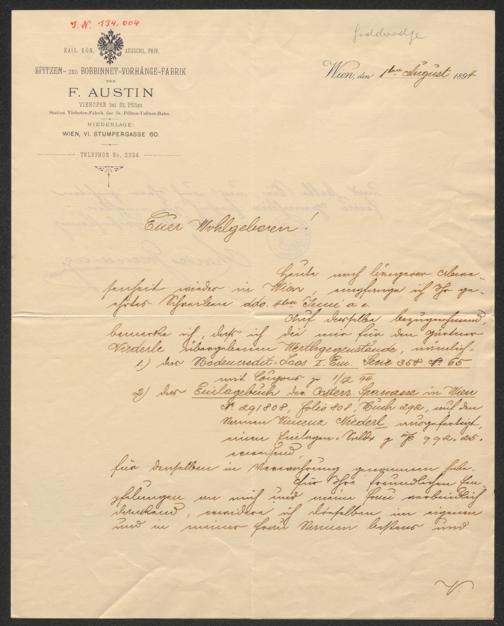 I.N. 134.004
KAIS. KÖN. AUSSCHL. PRIV.
SPITZEN- UND BOBBINNET-VORHÄNGE-FABRIK
VON
F. AUSTIN
VIEHOFEN bei St. Pölten
Station Viehofen-Fabrik der St. Pölten-Tullner-Bahn.
NIEDERLAGE:
WIEN, VI. STUMPERGASSE 60.
TELEPHON No. 2334
Wien, den 1ten August 1894
Euer Wohlgeboren!
Heute nach längerer Abwe-
senheit wieder in Wien, empfange ich Ihr ge-
ehrtes Schreiben ddo. 8ten Juni a. c.
Auf dasselbe bezugnehmend,
bemerke ich, daß ich die mir für den Gärtner
Niederle übergebenen Werthgegenstände, nämlich:
1) das Bodencredit-Loos I. Em. Serie 358 № 65
mit Coupons p 1/2 94
2) das Einlagebuch der Österr. Sparcasse in Wien
№ 241808, folio 808, Buch 242, auf den
Namen Niederl ausgefertigt,
einen Einlagen-Saldo
für denselben in Verwahrung genommen habe.
Für Ihre freundlichen Em-
pfehlungen an mich und meine Frau verbindlich
dankend, erwidere ich dieselben im eigenen
und in meiner Frau Namen bestens und